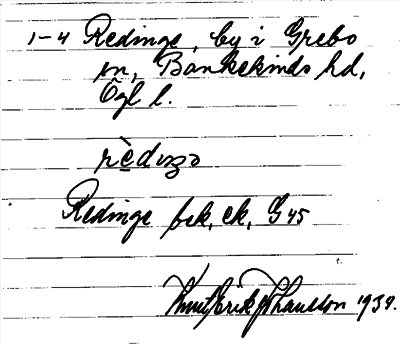 1-4 Redinge, by i Grebo
sn, Bankekinds hd,
Ögl l.
Redinge bek, ek, G45
Knut Erik Johansson 1939.